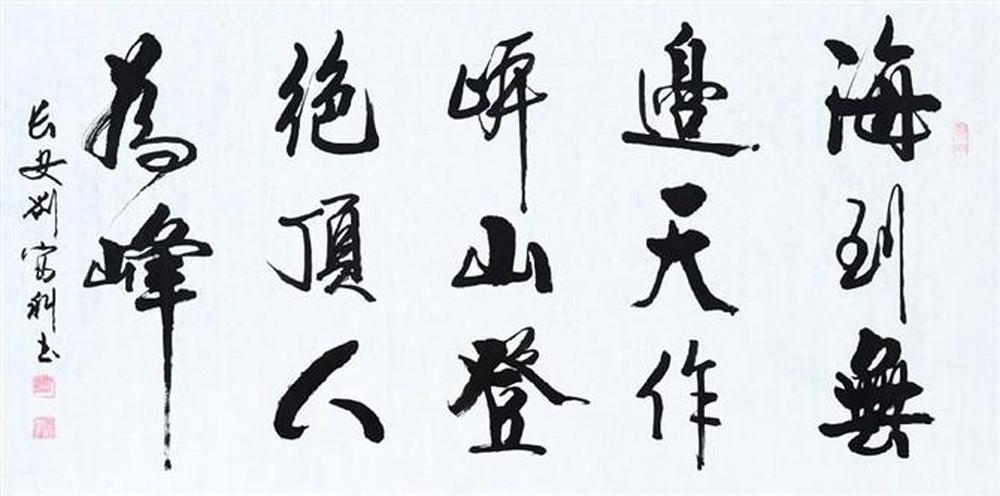 海到無
邊天作
岸山登
絶頂人
為峰
长安劉富科书